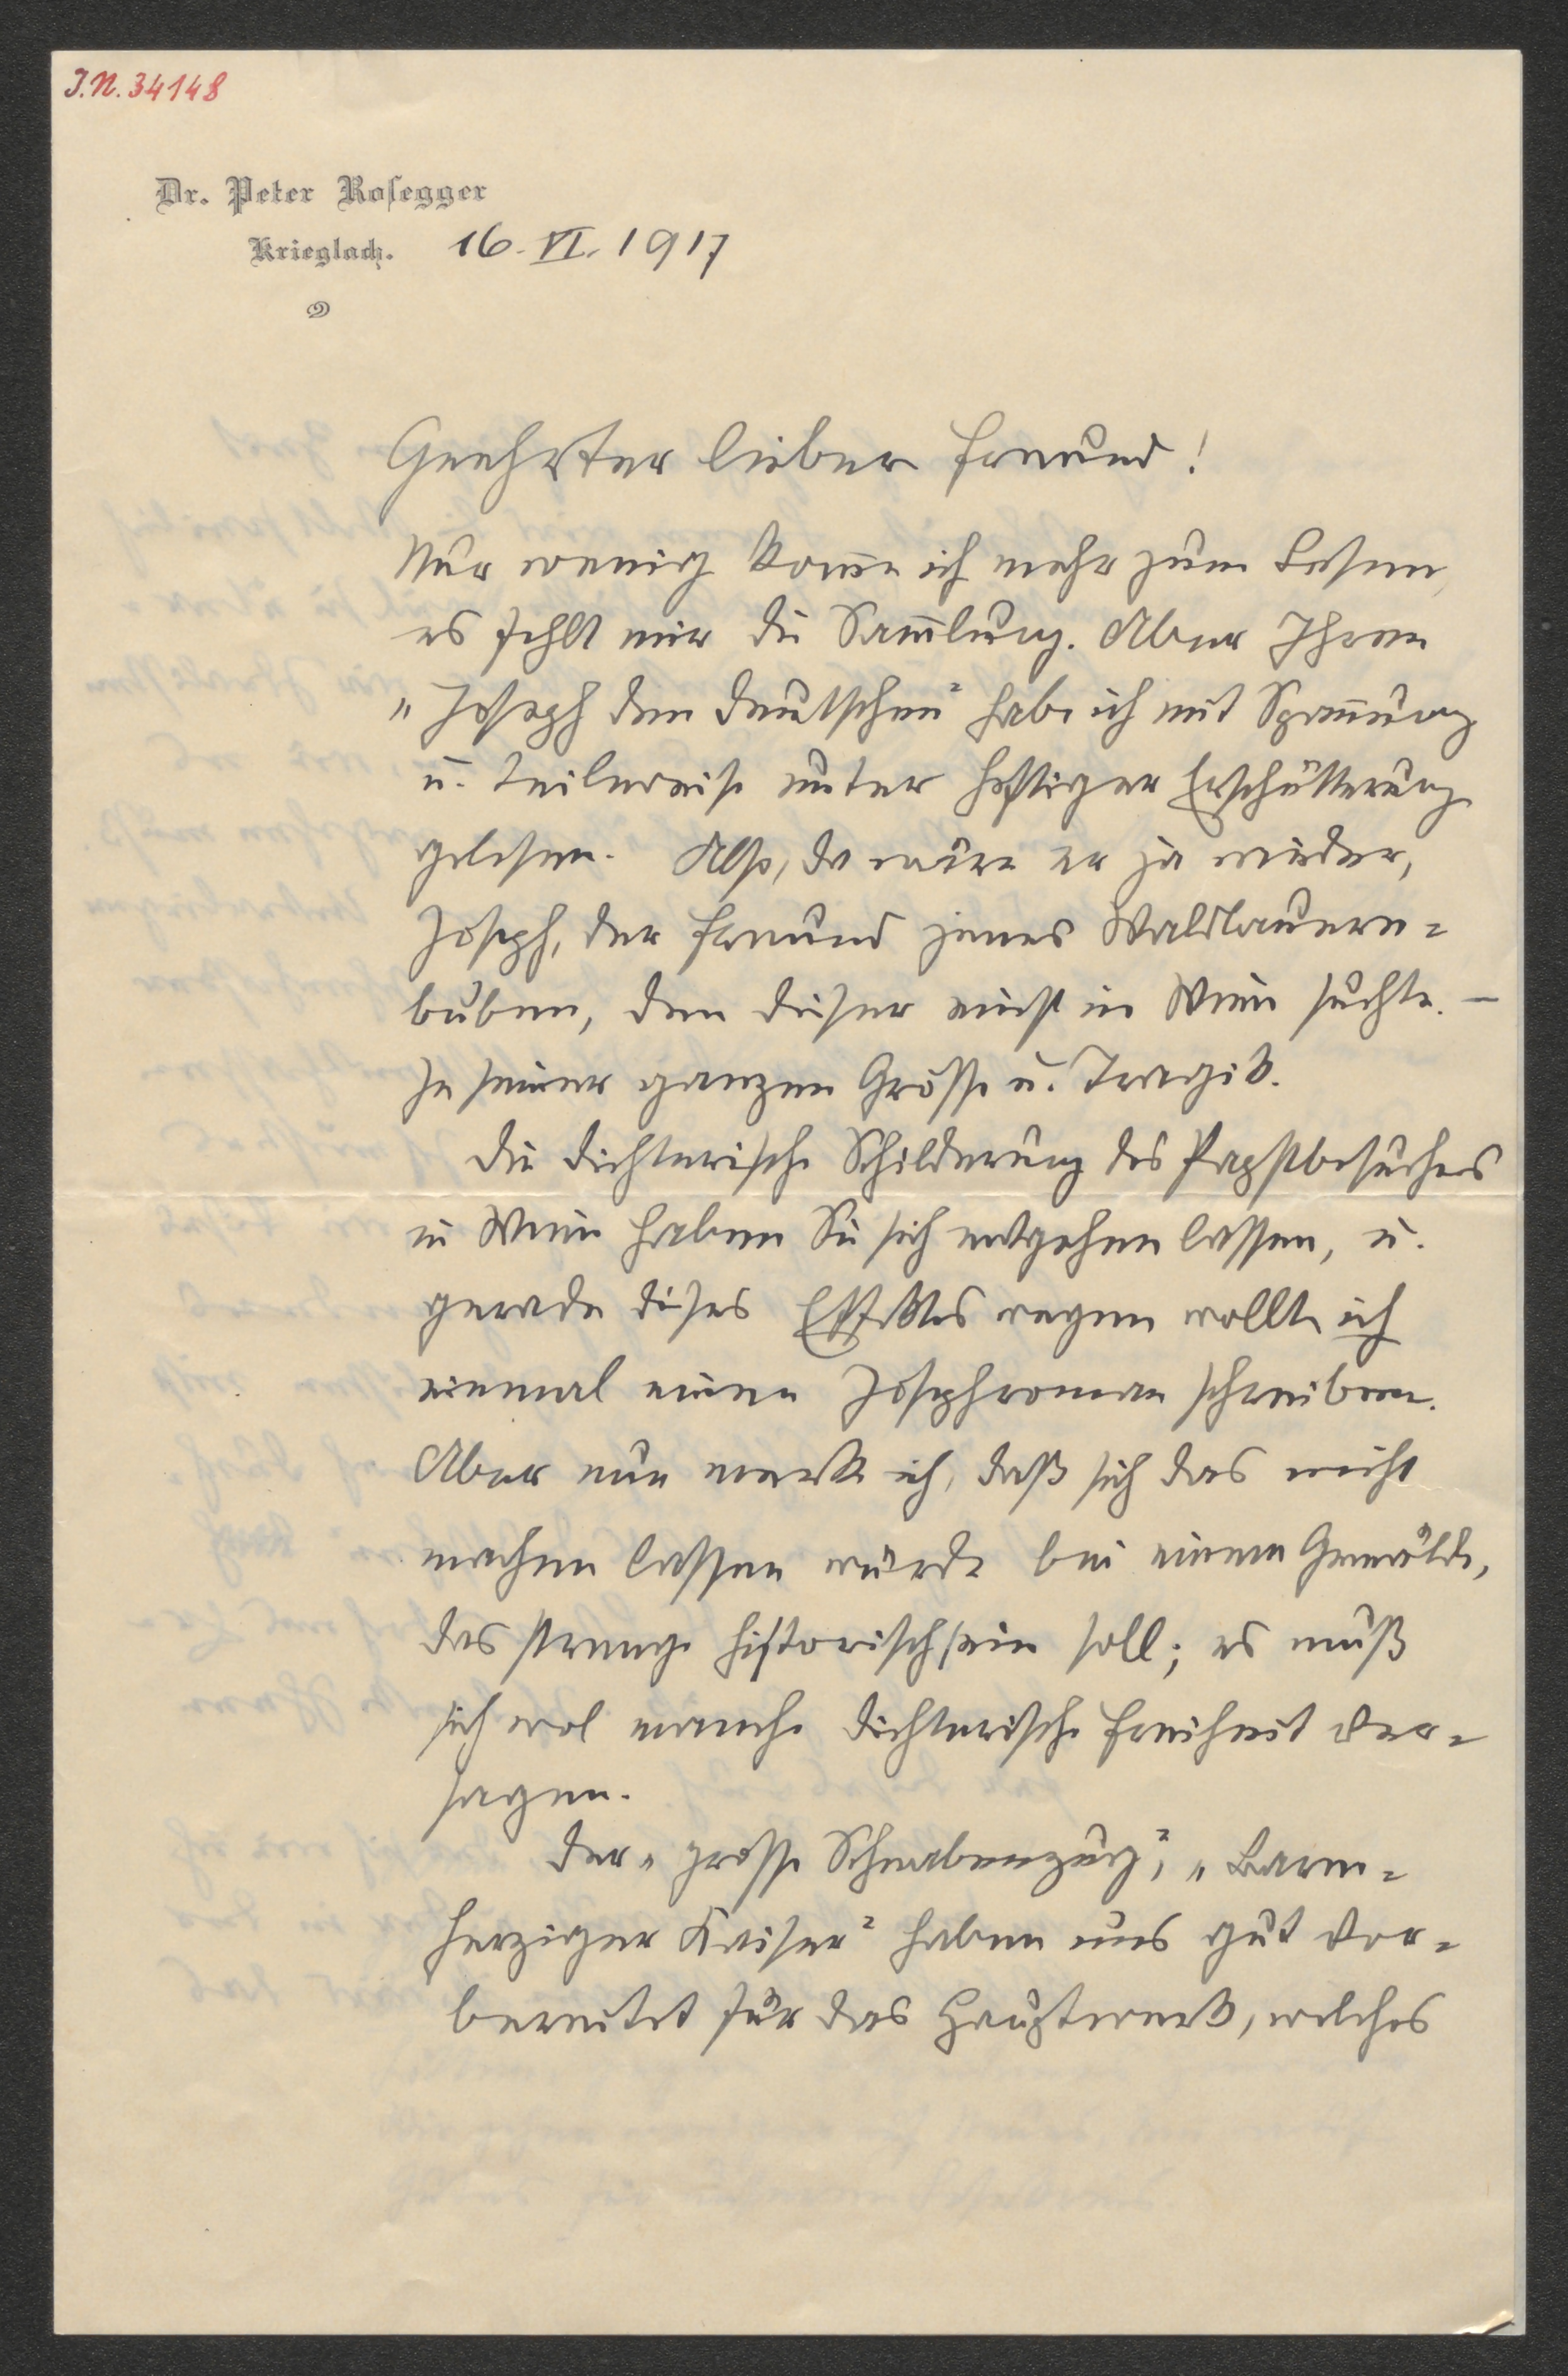 J.N. 34148
Dr. Peter Rosegger
Krieglach. 16. VI. 1917
Geehrter lieber Freund!
Nur wenig kom̄e ich mehr zum Lesen,
es fehlt mir die Sam̄lung. Aber Ihren
„Joseph den Deutschen" habe ich mit Span̄ung
u. teilweise unter heftiger Erschütterung
gelesen. Also, da wäre er ja wieder,
Joseph, der Freund jenes Waldbauern-
buben, den dieser einst in Wien suchte. –
In seiner ganzen Grösse u. Tragik.
Die dichterische Schilderung des Papstbesuches
in Wien haben Sie sich entgehen lassen, u.
gerade dieses Effektes wegen wollte ich
einmal einen Josephroman schreiben.
Aber nun merke ich, daß sich das nicht
machen lassen würde bei einem Gemälde,
das strenge historisch sein soll; es muß
sich wol manche dichterische Freiheit ver-
sagen.
Der „grosse Schwabenzug", „Barm-
herziger Kaiser" haben uns gut vor-
bereitet für das Hauptwerk, welches